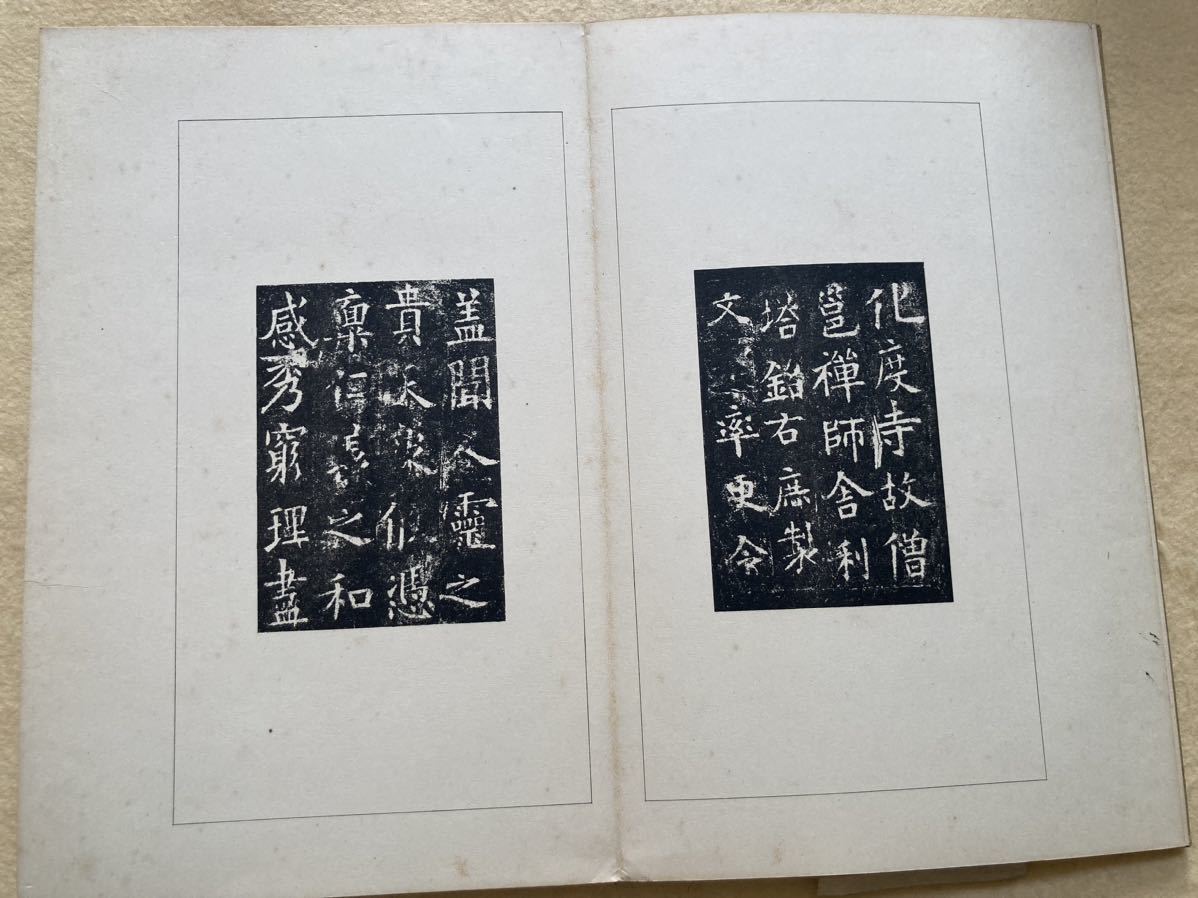 化度寺故僧
邕禪師舍利
塔銘右庶製
文 率更令
盖聞人靈之
貴天象仰憑
稟仁義之和
感秀窮理盡